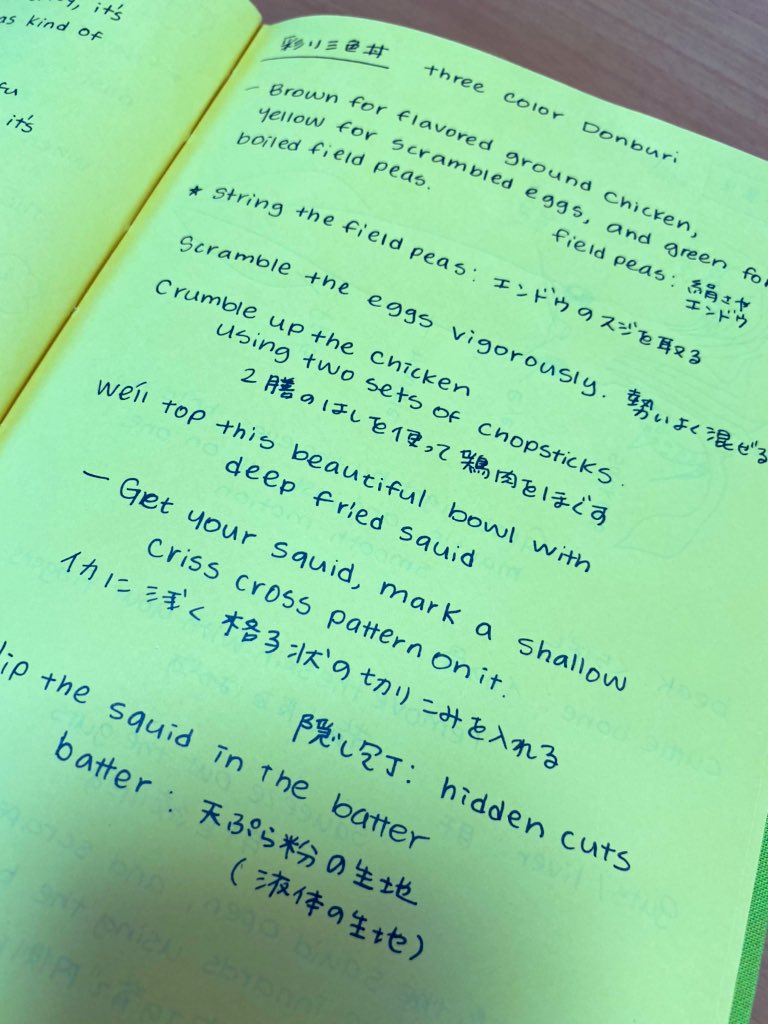 it's
as kind of
it's
彩り三色丼 three color Donburi
- Brown for flavored ground chicken,
yellow for scrambled eggs, and green for
boiled field peas.
field peas: 絹さや
エンドウ
★ string the field peas: エンドウのスジを取る
Scramble the eggs vigorously. 勢いよく混ぜる
Crumble up the chicken
using two sets of chopsticks.
2膳のはしを使って鶏肉をほぐす
we'll top this beautiful bowl with
deep fried squid
- Get your squid, mark a shallow
criss cross pattern on it.
イカに浅く格子状の切りこみを入れる
隠し包丁: hidden cuts
ip the squid in the batter
batter: 天ぷら粉の生地
(液体の生地)